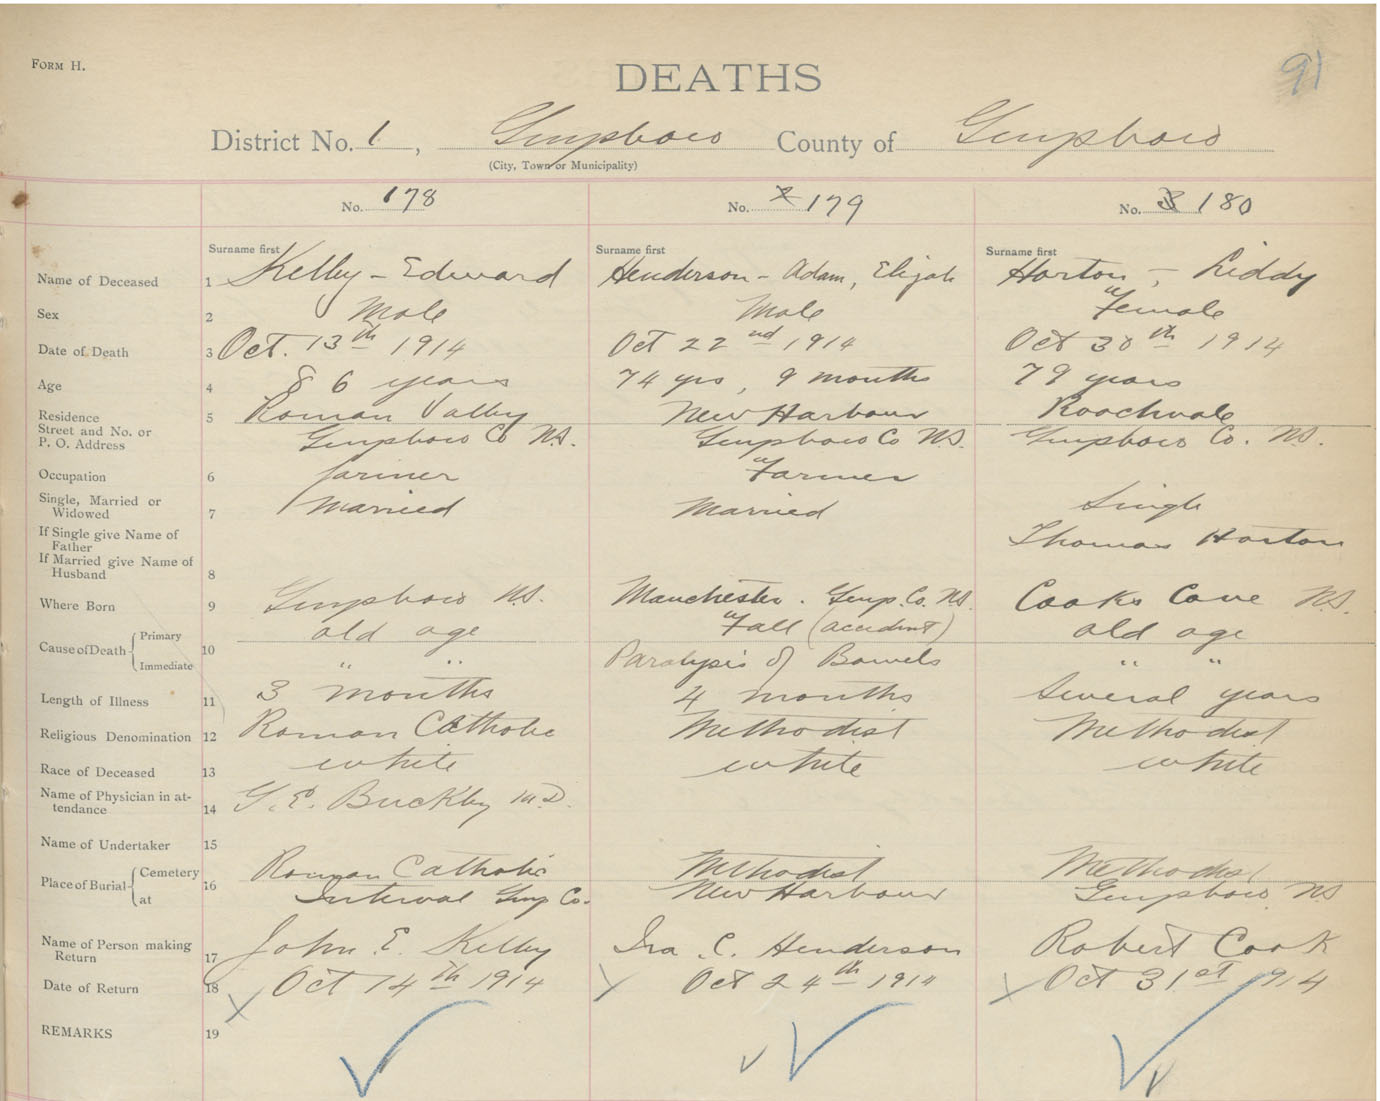 91
FORM H.
DEATHS
District No. 1, Guysboro County of Guysboro
(City, Town or Municipality)
No. 178 No. 2 179 No. 3 180
Surname first Surname first Surname first
Name of Deceased 1 Kelly - Edward Henderson - Adam, Elijah Horton - Liddy
Sex 2 Male Male Female
Date of Death 3 Oct. 13th 1914 Oct 22nd 1914 Oct 30th 1914
Age 4 86 years 74 yrs, 9 months 79 years
Residence 5 Roman Valley New Harbour Roachvale
Street and No. or
P. O. Address Guysboro Co N.S. Guysboro Co N.S. Guysboro Co. N.S.
Occupation 6 farmer Farmer
Single, Married or
Widowed 7 Married Married Single
If Single give Name of
Father Thomas Horton
If Married give Name of
Husband 8
Where Born 9 Guysboro N.S. Manchester. Guys. Co. N.S. Cooks Cove N.S.
Cause of Death { Primary 10 old age Fall (accident) old age
Immediate " " Paralysis of Bowels " "
Length of Illness 11 3 months 4 months Several years
Religious Denomination 12 Roman Catholic Methodist Methodist
Race of Deceased 13 white white white
Name of Physician in at-
tendance 14 G. E. Buckley M.D.
Name of Undertaker 15
Place of Burial { Cemetery 16 Roman Catholic Methodist Methodist
at Interval Guys Co. New Harbour Guysboro N.S
Name of Person making
Return 17 John E. Kelly Ira C. Henderson Robert Cook
Date of Return 18 Oct 14th 1914 Oct 24th 1914 Oct 31st 1914
REMARKS 19